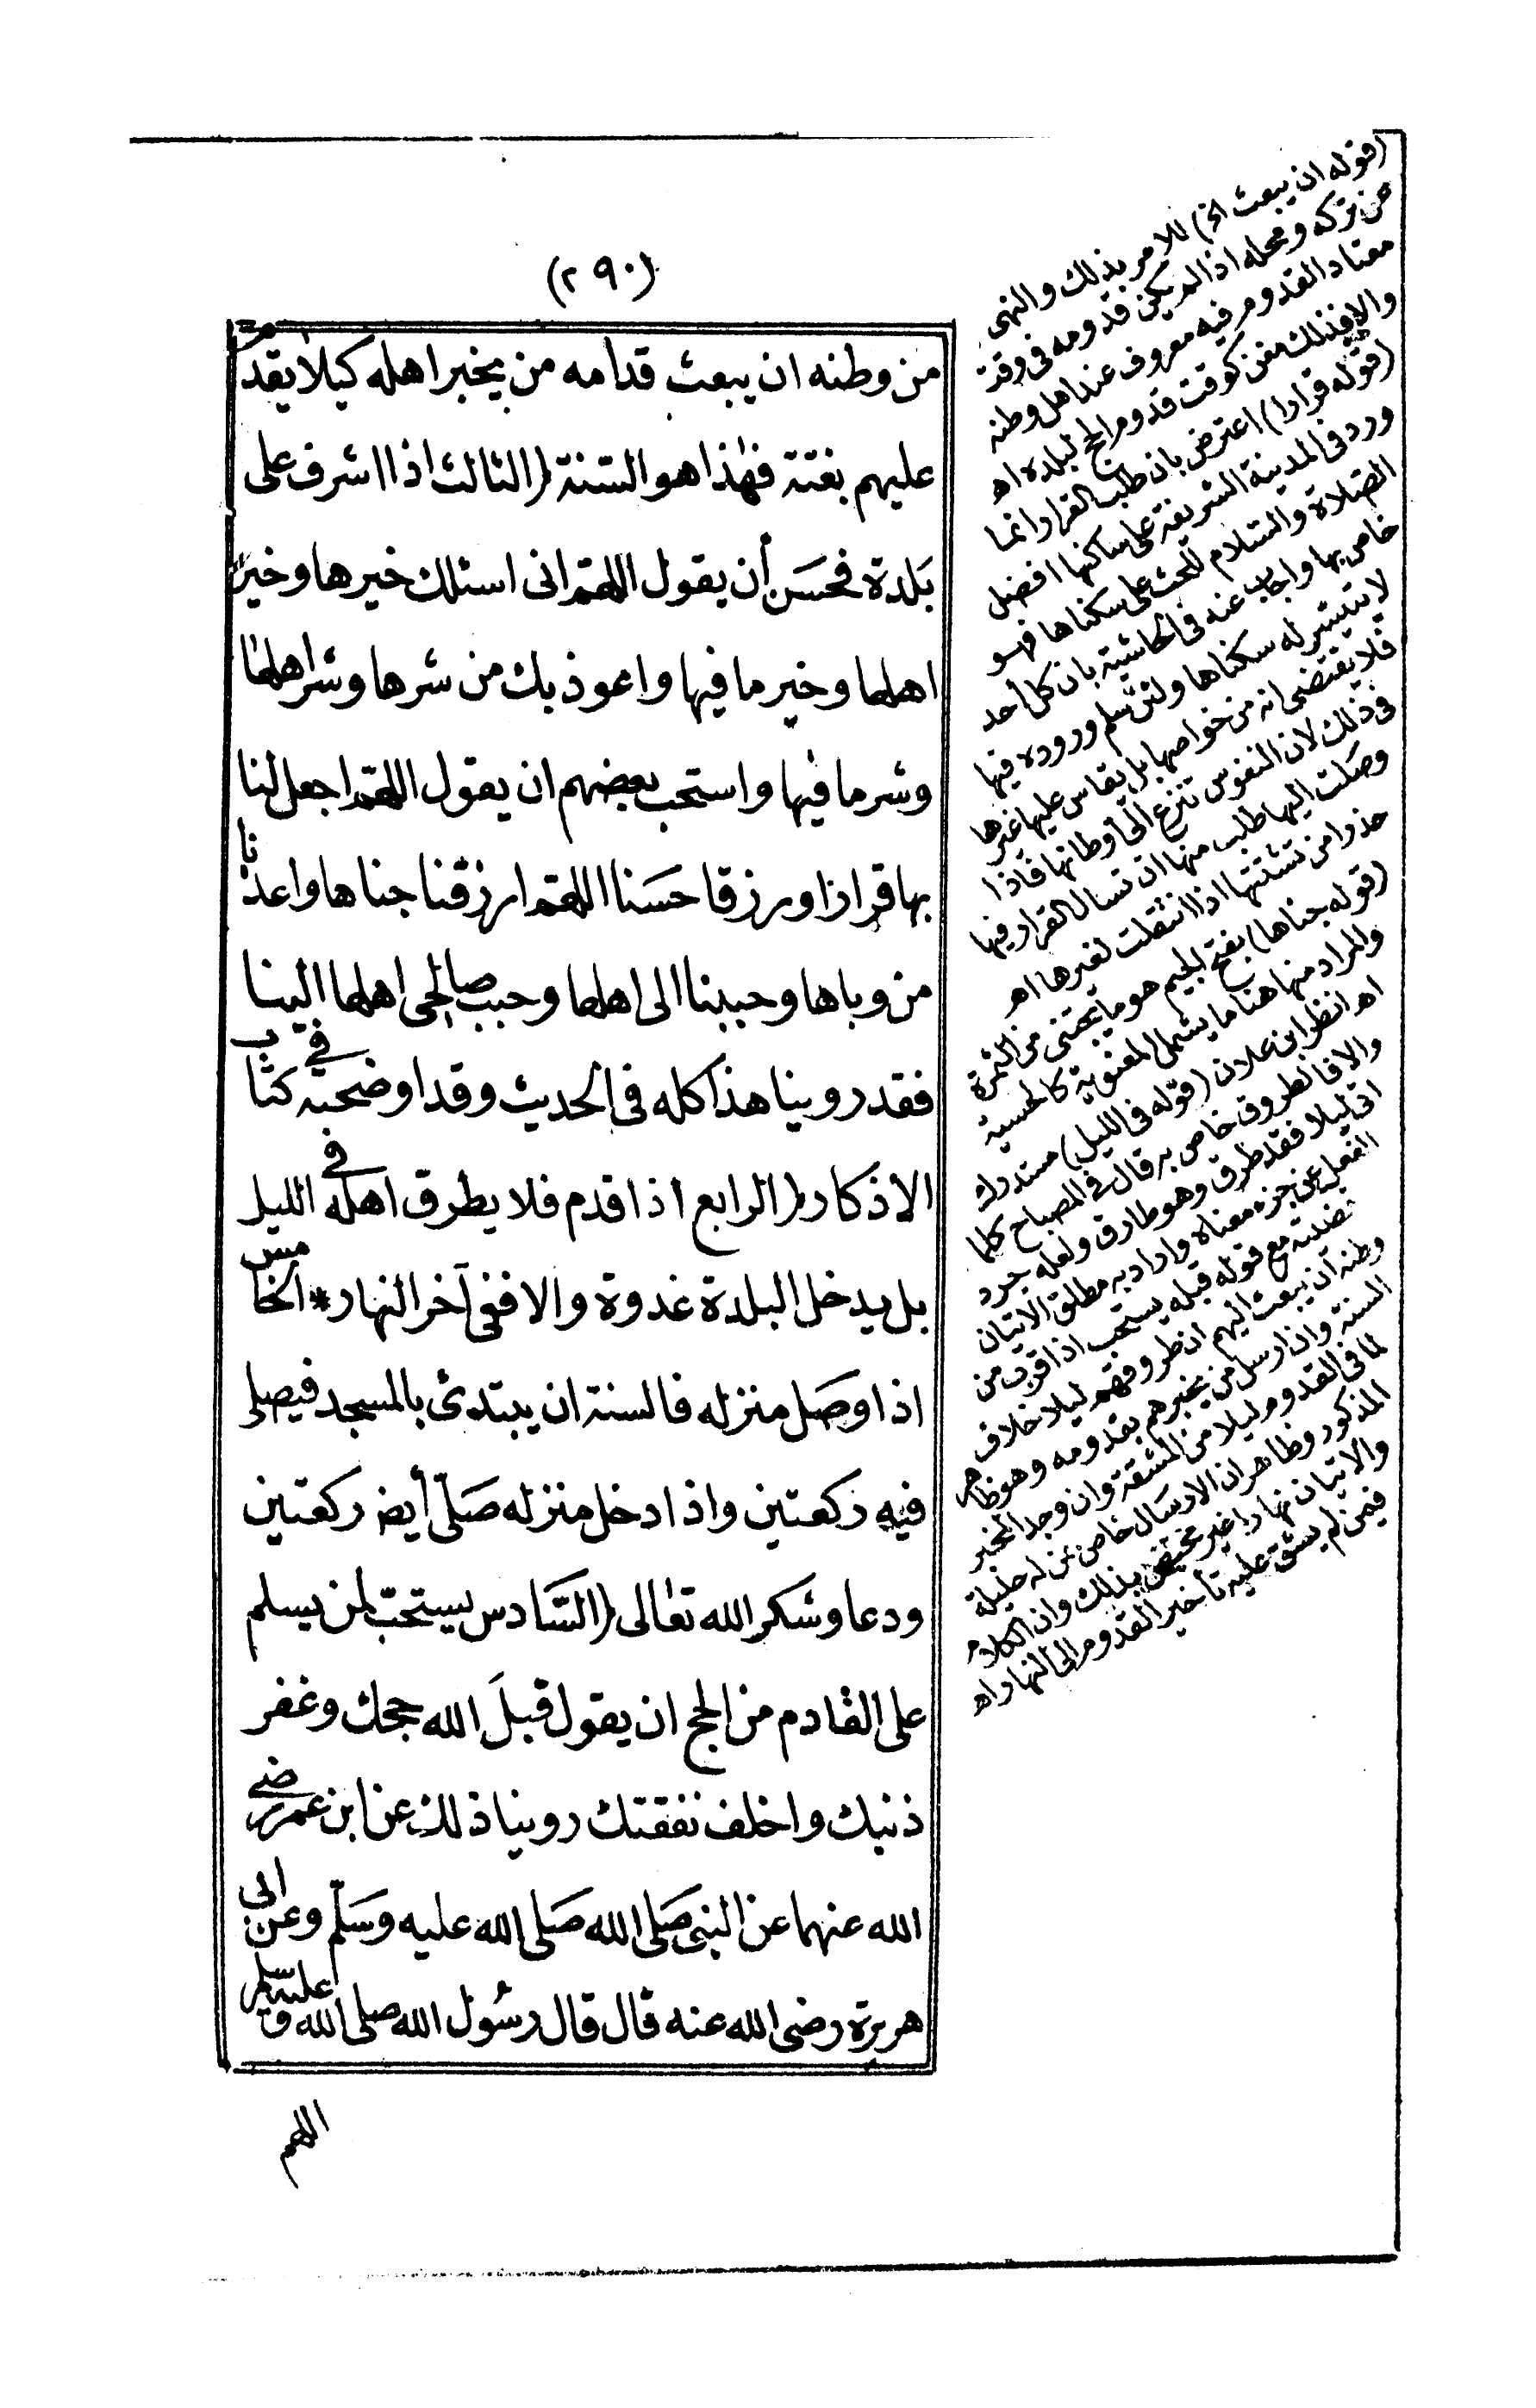 (٢٩٠)
من وطنه ان يبعث قدامه من يخبر اهله كيلا يقدم
عليهم بغتة فهذا هو السنة (الثالث اذا اشرف على
بَلدة فحسَن أن يقول اللهمّ انى اسئلك خيرها وخير
اهلها وخير ما فيها واعوذ بك من شرها وشر اهلها
وشر ما فيها واستحب بعضهم ان يقول اللهمّ اجعل لنا
بها قرارا ورزقا حَسَنا اللهمّ ارزقنا جناها واعذنا
من وباها وحببنا الى اهلها وحبب صالحى اهلها الينا
فقد روينا هذا كله فى الحديث وقد اوضحته فى كتاب
الاذكار (الرابع اذا قدم فلا يطرق اهله فى الليل
بل يدخل البلدة غدوة والا ففى آخر النهار * الخامس
اذا وصَل منزله فالسنة ان يبتدئ بالمسجد فيصلى
فيه ركعتين واذا دخل منزله صَلّى أيض ركعتين
ودعا وشكر الله تعالى (السَّادس يستحبّ لمن يسلم
على القادم من الحج ان يقول قبلَ الله حجك وغفر
ذنبك واخلف نفقتك روينا ذلك عن ابن عمر رضى
الله عنهما عن النبى صَلى الله صَلى الله عليه وسَلّم وعن ابى
هريرة رضى الله عنه قال قال رسُول الله صلى الله عليه وسلم
اللهم
(قوله ان يبعث الخ) للامر بذلك والنهى
عن تركه ومحله اذا لم يكن قدومه فى وقت
معتاد القدوم فيه معروف عند اهل وطنه
والا فذلك مغن كوقت قدوم الحج لبلده اه
(قوله قرارا) اعترض بان طلب القرار انما
ورد فى المدينة الشريفة على ساكنها افضل
الصّلاة والسّلام للحث على سكناها فهو
خاص بها واجاب عنه فى الحاشية بان كل أحد
لا يتيسّر له سكناها ولئن سّلم وروده فيها
فلا يقتضى انه من خواصها بل يقاس عليها غيرها
فى ذلك لان النفوس تنزع الى أوطانها فاذا
وصَلت اليها طلب منها ان تسال القرار فيها
حذرا من تشتتها اذا انتقلت لغيرها اه
(قوله جناها) بفتح الجيم هو ما يجتنى من الثمرة
والمراد منها هنا ما يشمل المعنوية كالحسية
اه انظر ابن علان (قوله فى الليل) مستدرك
والا فالطروق خاص به قال فى المصباح كلما
اتى ليلا فقد طرق وهو طارق ولعله جرد
الفعل عن جزء معناه واراد به مطلق الاتيان
مع قوله قبله يستحب اذا قرب من
وطنه أن يبعث اليهم ان طروقهم ليلا خلاف
السنة وان ارسل من يخبرهم بقدومه وهو ظاهر
لما فى القدوم ليلا من المشقة وان وجد الخبر
المذكور وظاهر ان الارسَال خاص بمن له حليلة
والاتيان نهارا غير مختص بذلك وان الكلام
فيمن لم يشق عليه تأخير القدوم الى النهار اه